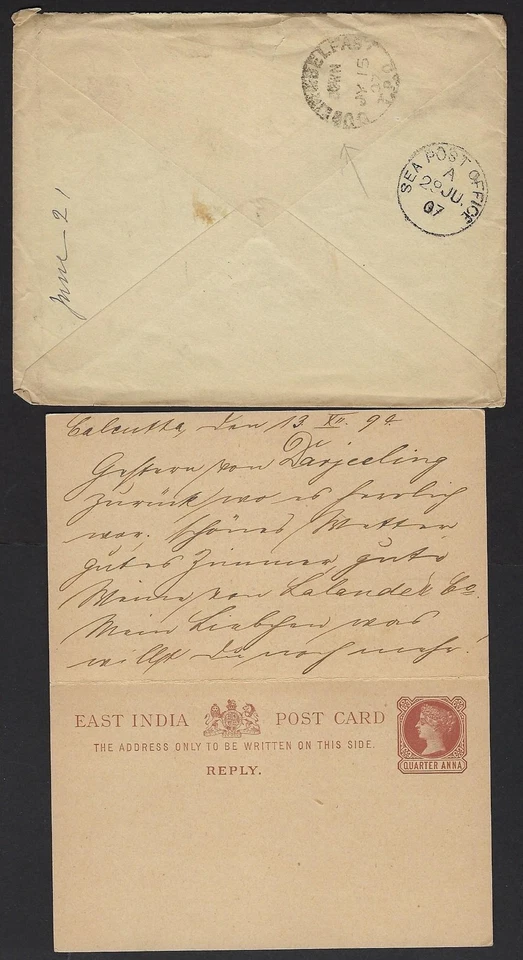 BELFAST
DOWN
JY 15
07
SEA POST OFFICE
A
29 JU.
07
June 21
Calcutta, den 13. XII. 90.
Gestern von Darjeeling
zurück, wo es herrlich
war. Schönes Wetter,
gutes Zimmer, gute
Weine von
Mein Liebchen was
willst Du noch mehr!
EAST INDIA POST CARD
THE ADDRESS ONLY TO BE WRITTEN ON THIS SIDE.
REPLY.
QUARTER ANNA